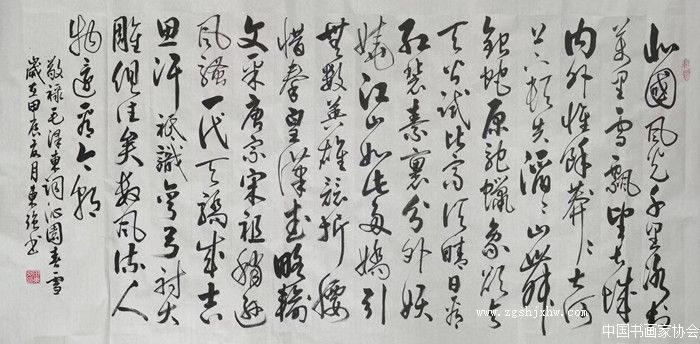 北國風光千里冰封
萬里雪飄望長城
内外惟餘莽莽大河
上下頓失滔滔山舞
銀蛇原馳蠟象欲與
天公試比高須晴日看
紅裝素裹分外妖
嬈江山如此多嬌引
無數英雄競折腰
惜秦皇漢武略輸
文采唐宗宋祖稍遜
風騷一代天驕成吉
思汗祇識彎弓射大
雕俱往矣數風流人
物還看今朝
敬禄毛澤東詞沁園春雪
歲在甲辰夏月書
www.zgshjxhw.com
中国书画家协会